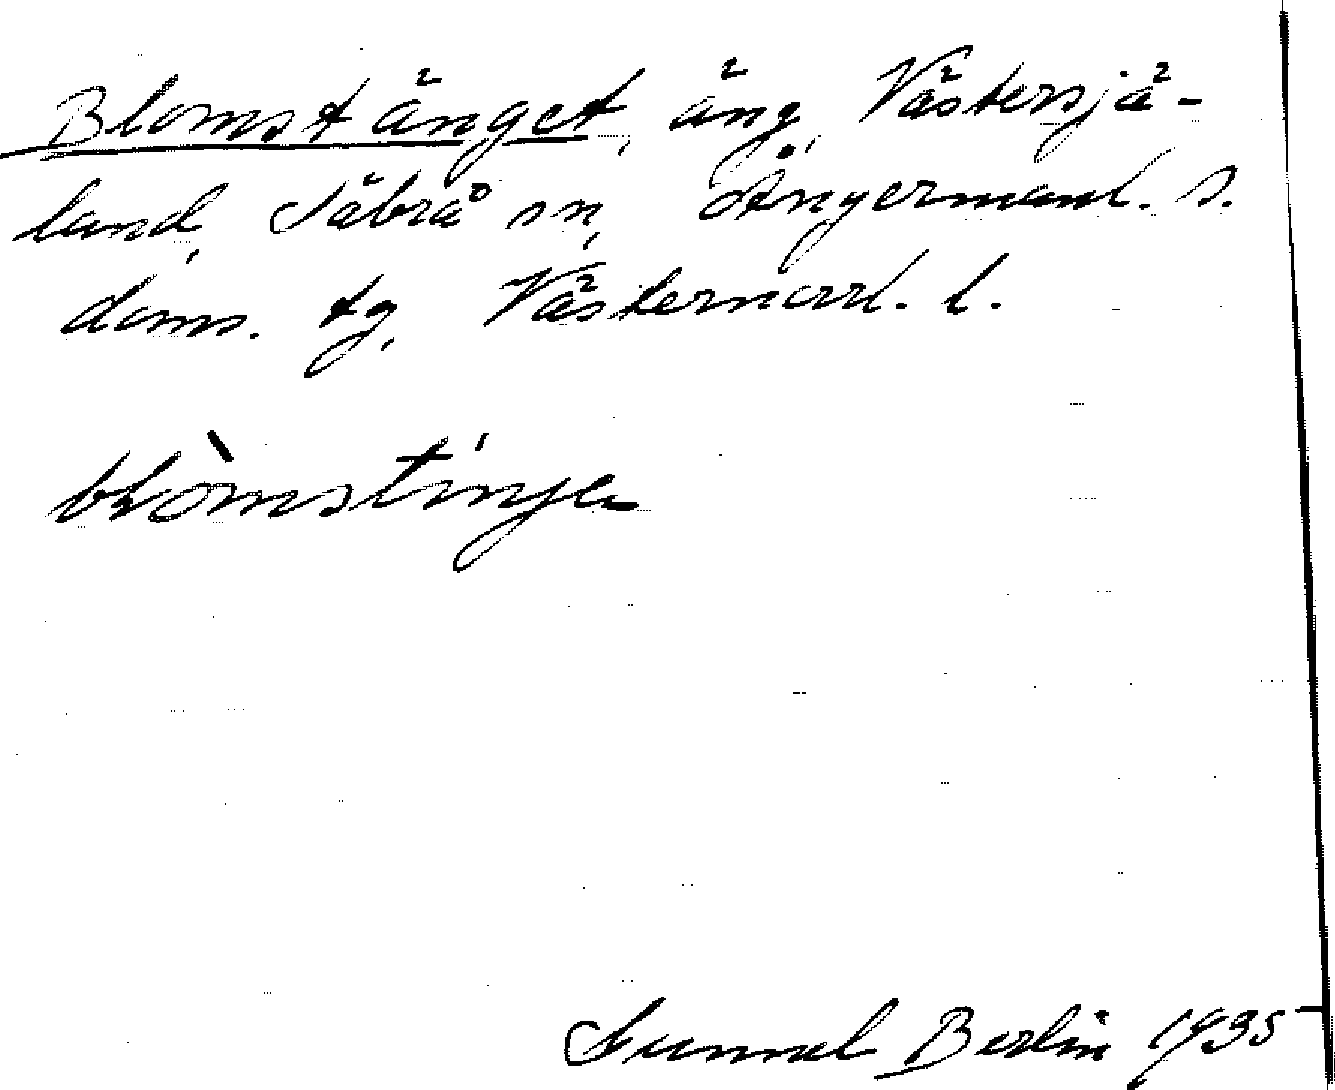 Blomstänget, äng, Västersjä-
land, Säbrå sn, Ångermanl. s.
doms. tg, Västernorrl. l.
blòmstinje
Gunnel Berlin 1935